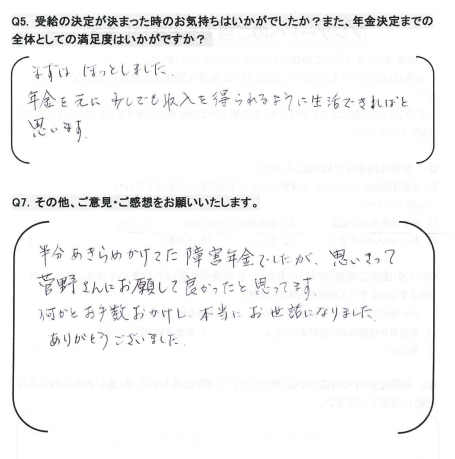 Q5. 受給の決定が決まった時のお気持ちはいかがでしたか？また、年金決定までの
全体としての満足度はいかがですか？
まずは ほっとしました.
年金を元に 少しでも収入を得られるように生活できればと
思います.
Q7. その他、ご意見・ご感想をお願いいたします。
半分あきらめかけてた 障害年金でしたが、思いきって
菅野さんにお願して良かったと思ってます
何かとお手数おかけし、本当にお世話になりました.
ありがとうございました.